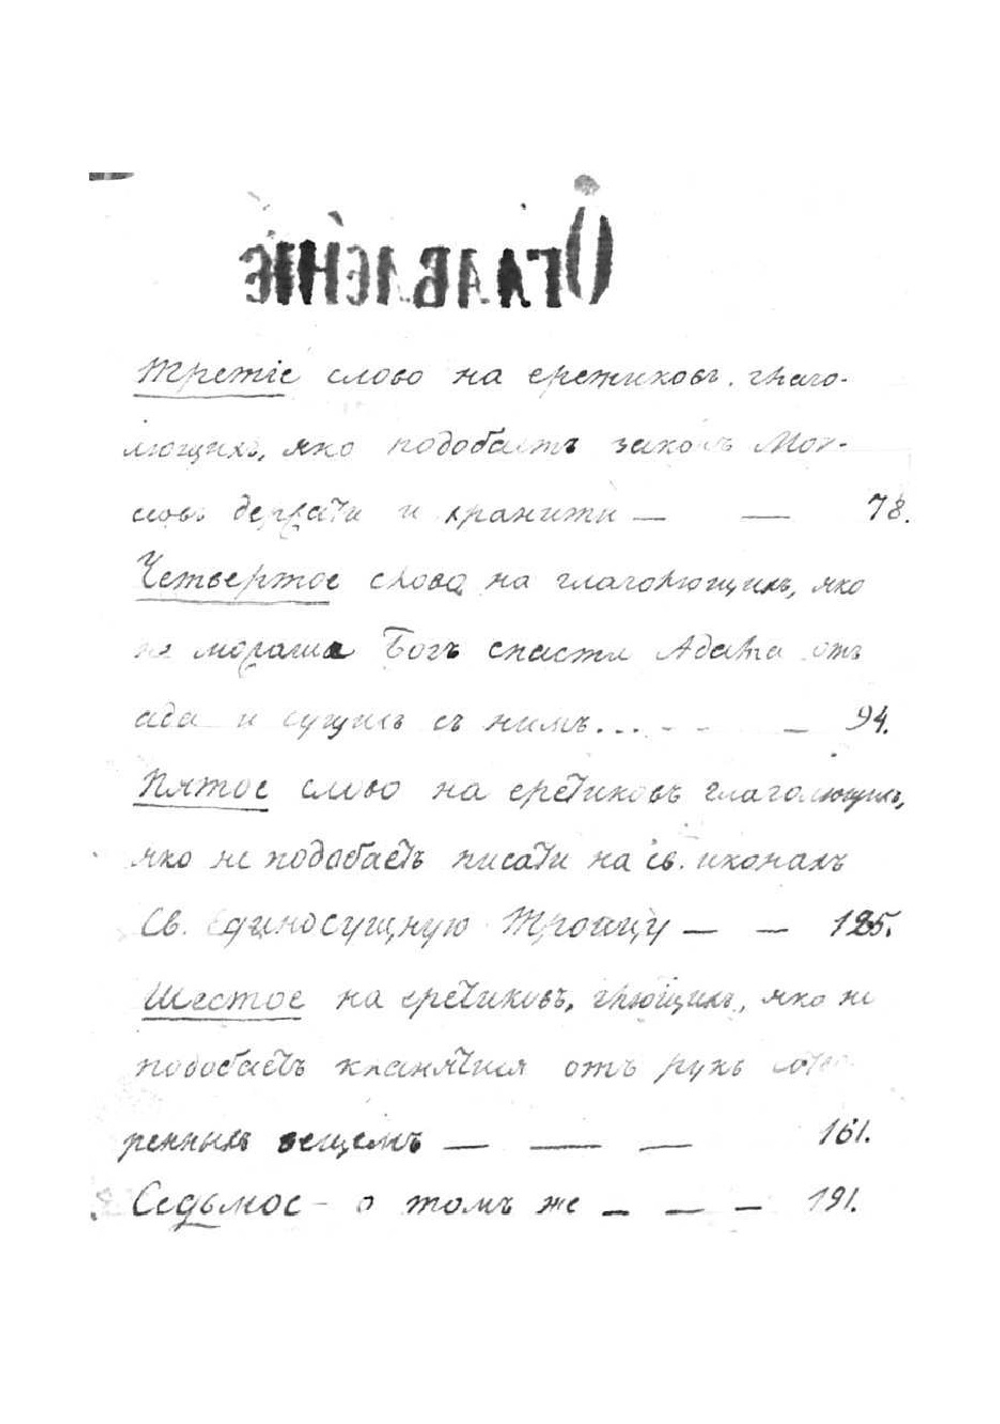 Оглавленіе
Третіе слово на еретиковъ. глаго-
лющихъ, яко подобаетъ законъ Мои-
сеовъ держати и хранити — — 78.
Четвертое слово на глаголющихъ, яко
не можаше Богъ спасти Адама отъ
ада и сущихъ съ нимъ... - - — 94.
Пятое слово на еретиковъ глаголющихъ,
яко не подобаетъ писати на св. иконахъ
Св. Единосущную Троицу — — 125.
Шестое на еретиковъ, глющихъ, яко не
подобаетъ кланятися отъ рукъ сотво
реннымъ вещемъ — — — 161.
Седьмое - о томъ же — — — 191.